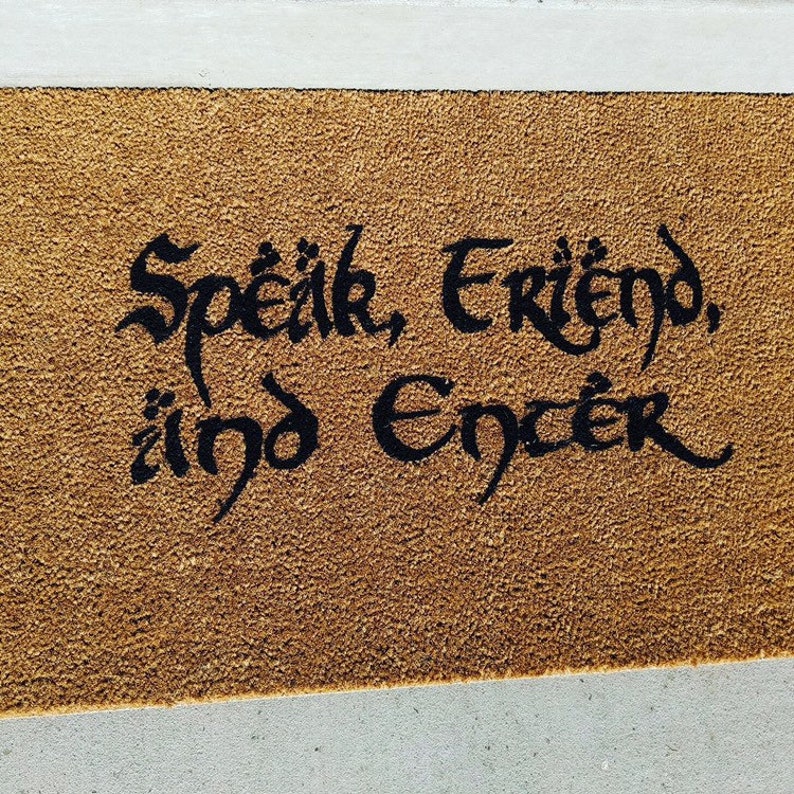 Speak, Friend,
and Enter